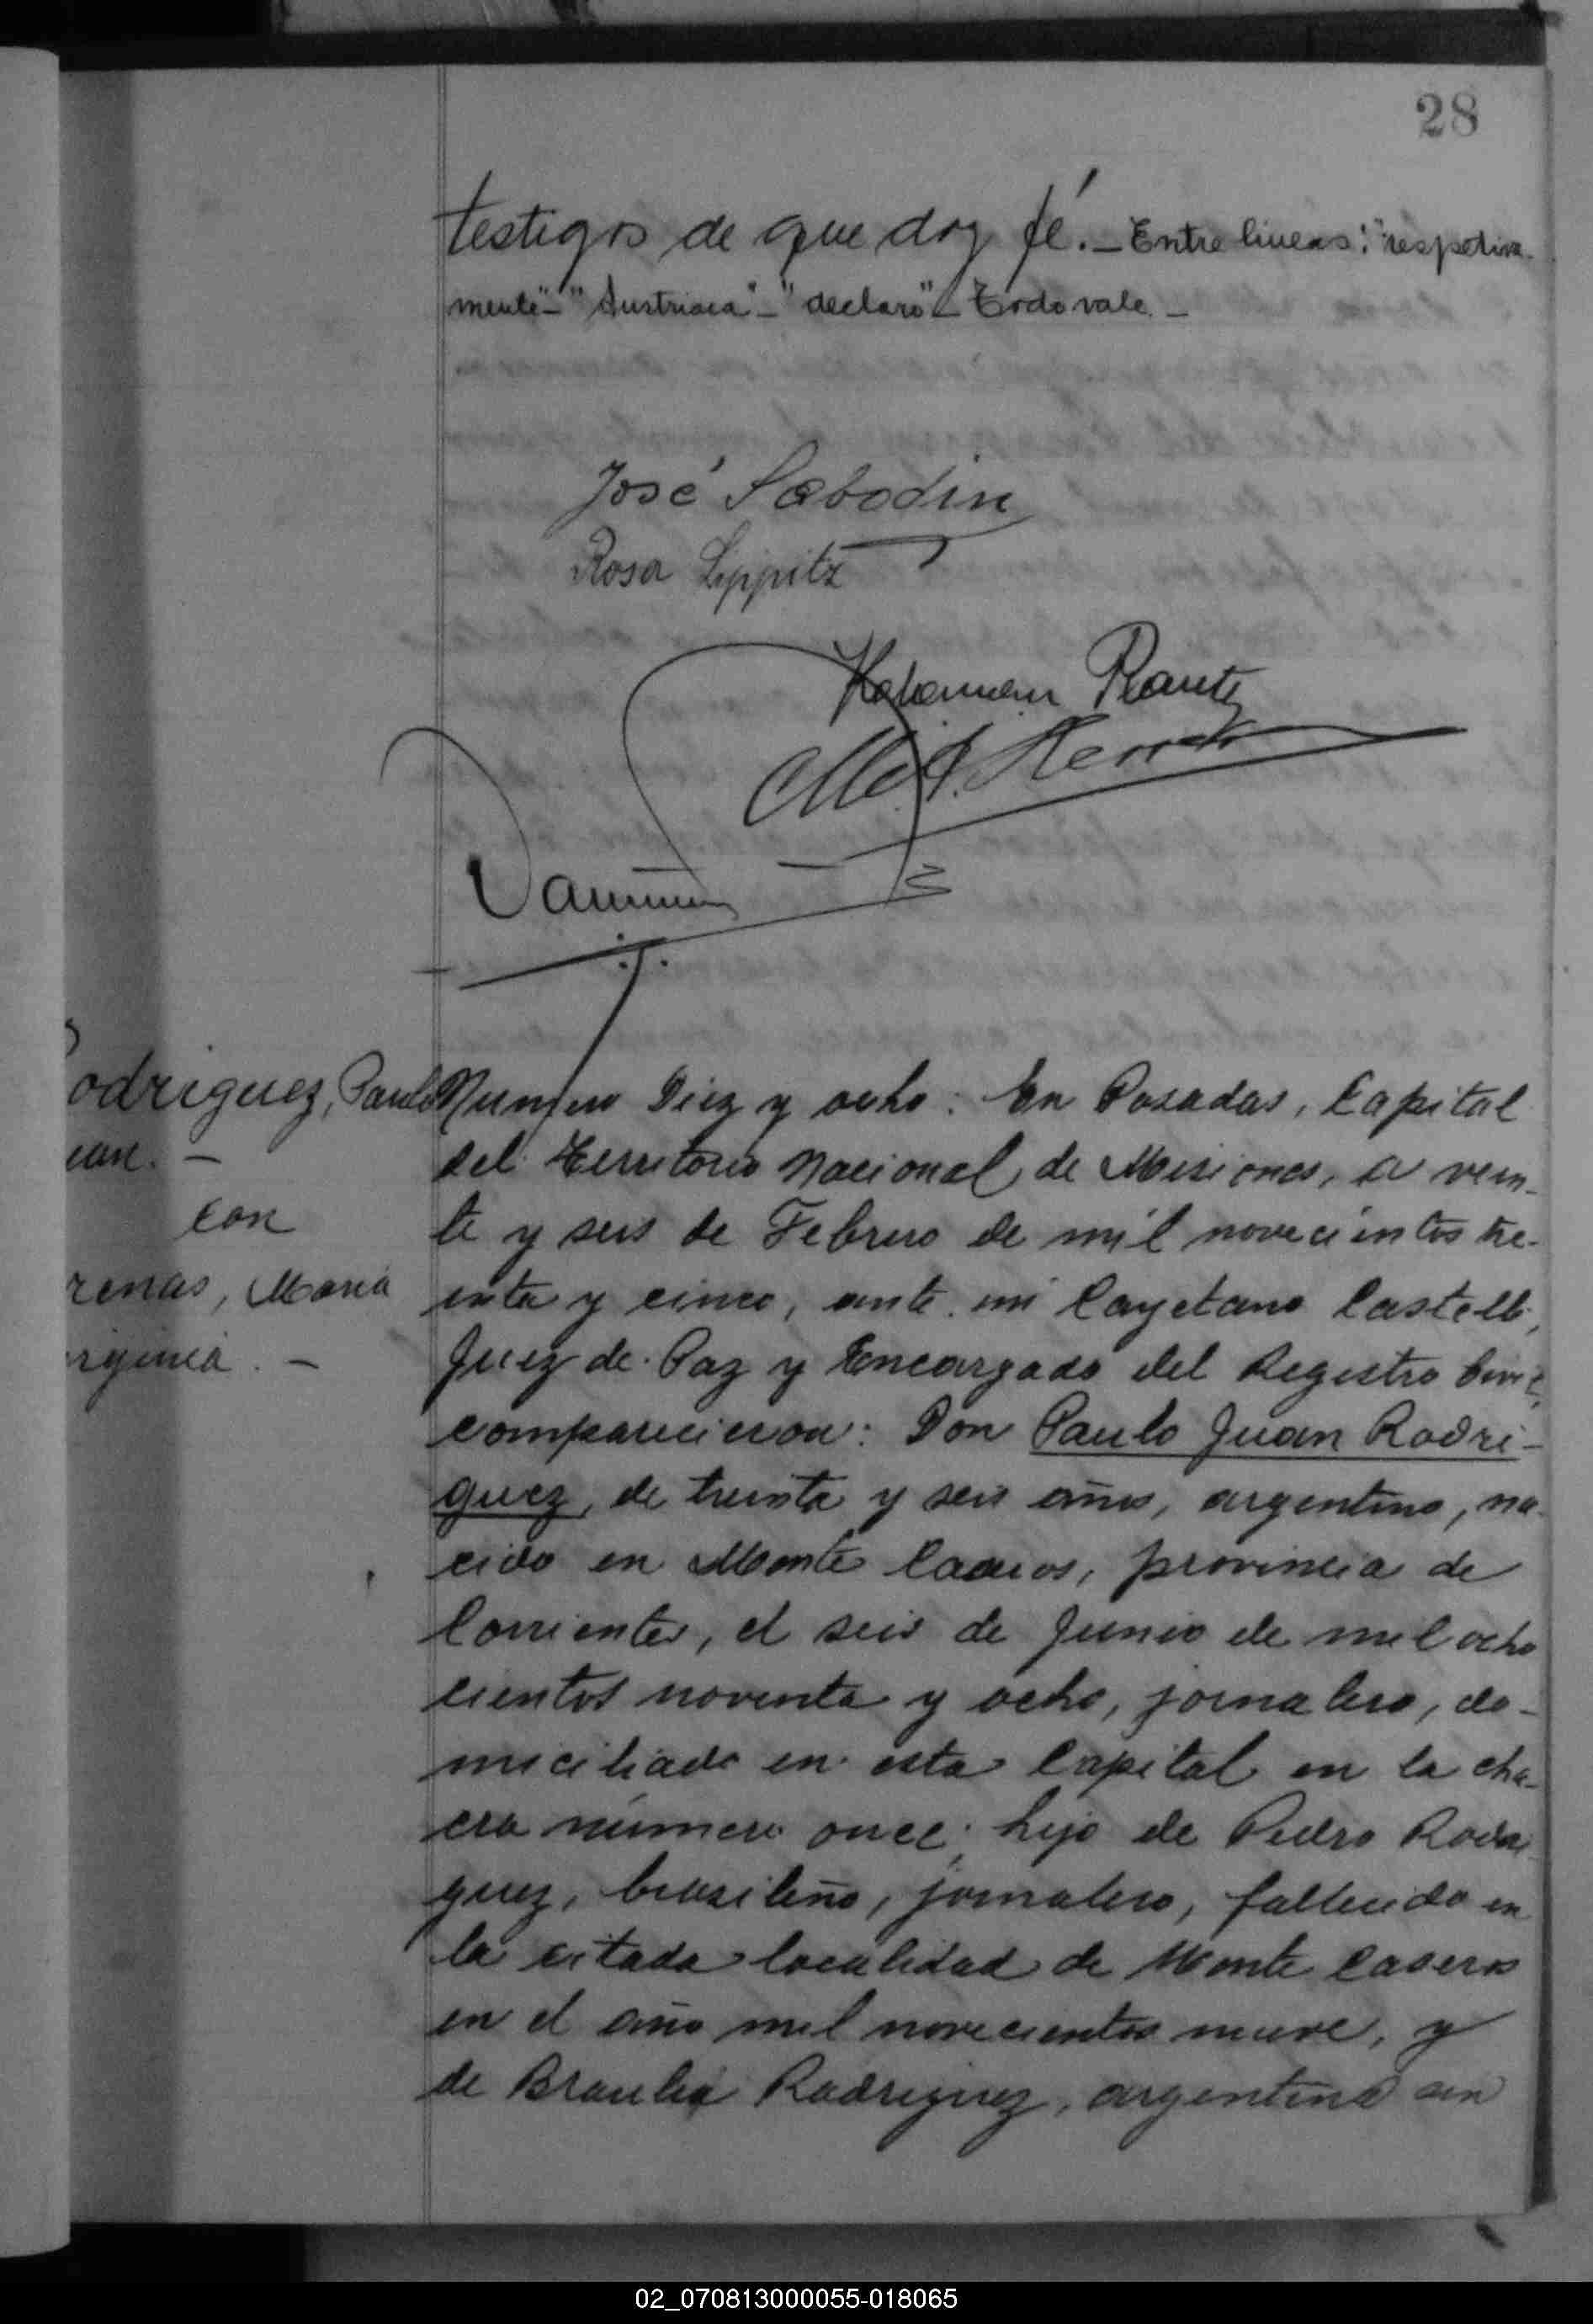 28
testigos de que doy fé. — Entre lineas: "respetiva-
mente" - "Austriaca" - "declaro" - Todo vale. -
José Sabodin
Rosa Lippitz
odriguez, Paulo
uan. -
con
renas, Maria
irginia. -
Numero Diez y ocho: En Posadas, Capital
del Territorio Nacional de Misiones, a vein-
te y seis de Febrero de mil novecientos tre-
inta y cinco, ante mi Cayetano Castelli,
Juez de Paz y Encargado del Registro Civil,
comparecieron: Don Paulo Juan Rodri-
guez, de treinta y seis años, argentino, na-
cido en Monte Caseros, provincia de
Corrientes, el seis de Junio de mil ocho
cientos noventa y ocho, jornalero, do-
miciliado en esta Capital en la cha-
cra número once; hijo de Pedro Rodri
guez, brasileño, jornalero, fallecido en
la citada localidad de Monte Caseros
en el año mil novecientos nueve, y
de Braulia Rodriguez, argentina sin
02_070813000055-018065